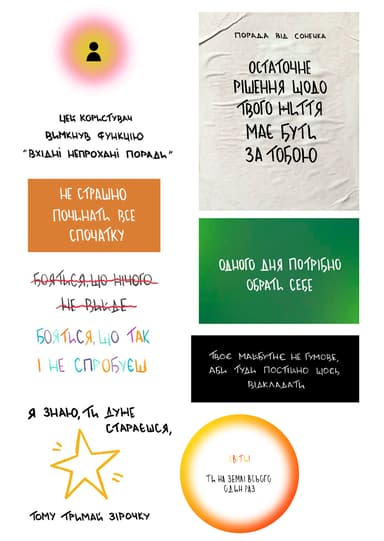 ЦЕЙ КОРИСТУВАЧ
ВИМКНУВ ФУНКЦІЮ
"ВХІДНІ НЕПРОХАНІ ПОРАДИ"
НЕ СТРАШНО
ПОЧИНАТИ ВСЕ
СПОЧАТКУ
БОЯТЬСЯ, ЩО НІЧОГО
НЕ ВИЙДЕ
БОЯТЬСЯ, ЩО ТАК
І НЕ СПРОБУЄШ
Я ЗНАЮ, ТИ ДУЖЕ
СТАРАЄШСЯ,
ТОМУ ТРИМАЙ ЗІРОЧКУ
ПОРАДА ВІД СОНЕЧКА
ОСТАТОЧНЕ
РІШЕННЯ ЩОДО
ТВОГО ЖИТТЯ
МАЄ БУТЬ
ЗА ТОБОЮ
ОДНОГО ДНЯ ПОТРІБНО
ОБРАТЬ СЕБЕ
ТВОЄ МАЙБУТНЄ НЕ ГУМОВЕ,
АБИ ТУДИ ПОСТІЙНО ЩОСЬ
ВІДКЛАДАТИ
СВІТИ
ТИ НА ЗЕМЛІ ВСЬОГО
ОДИН РАЗ